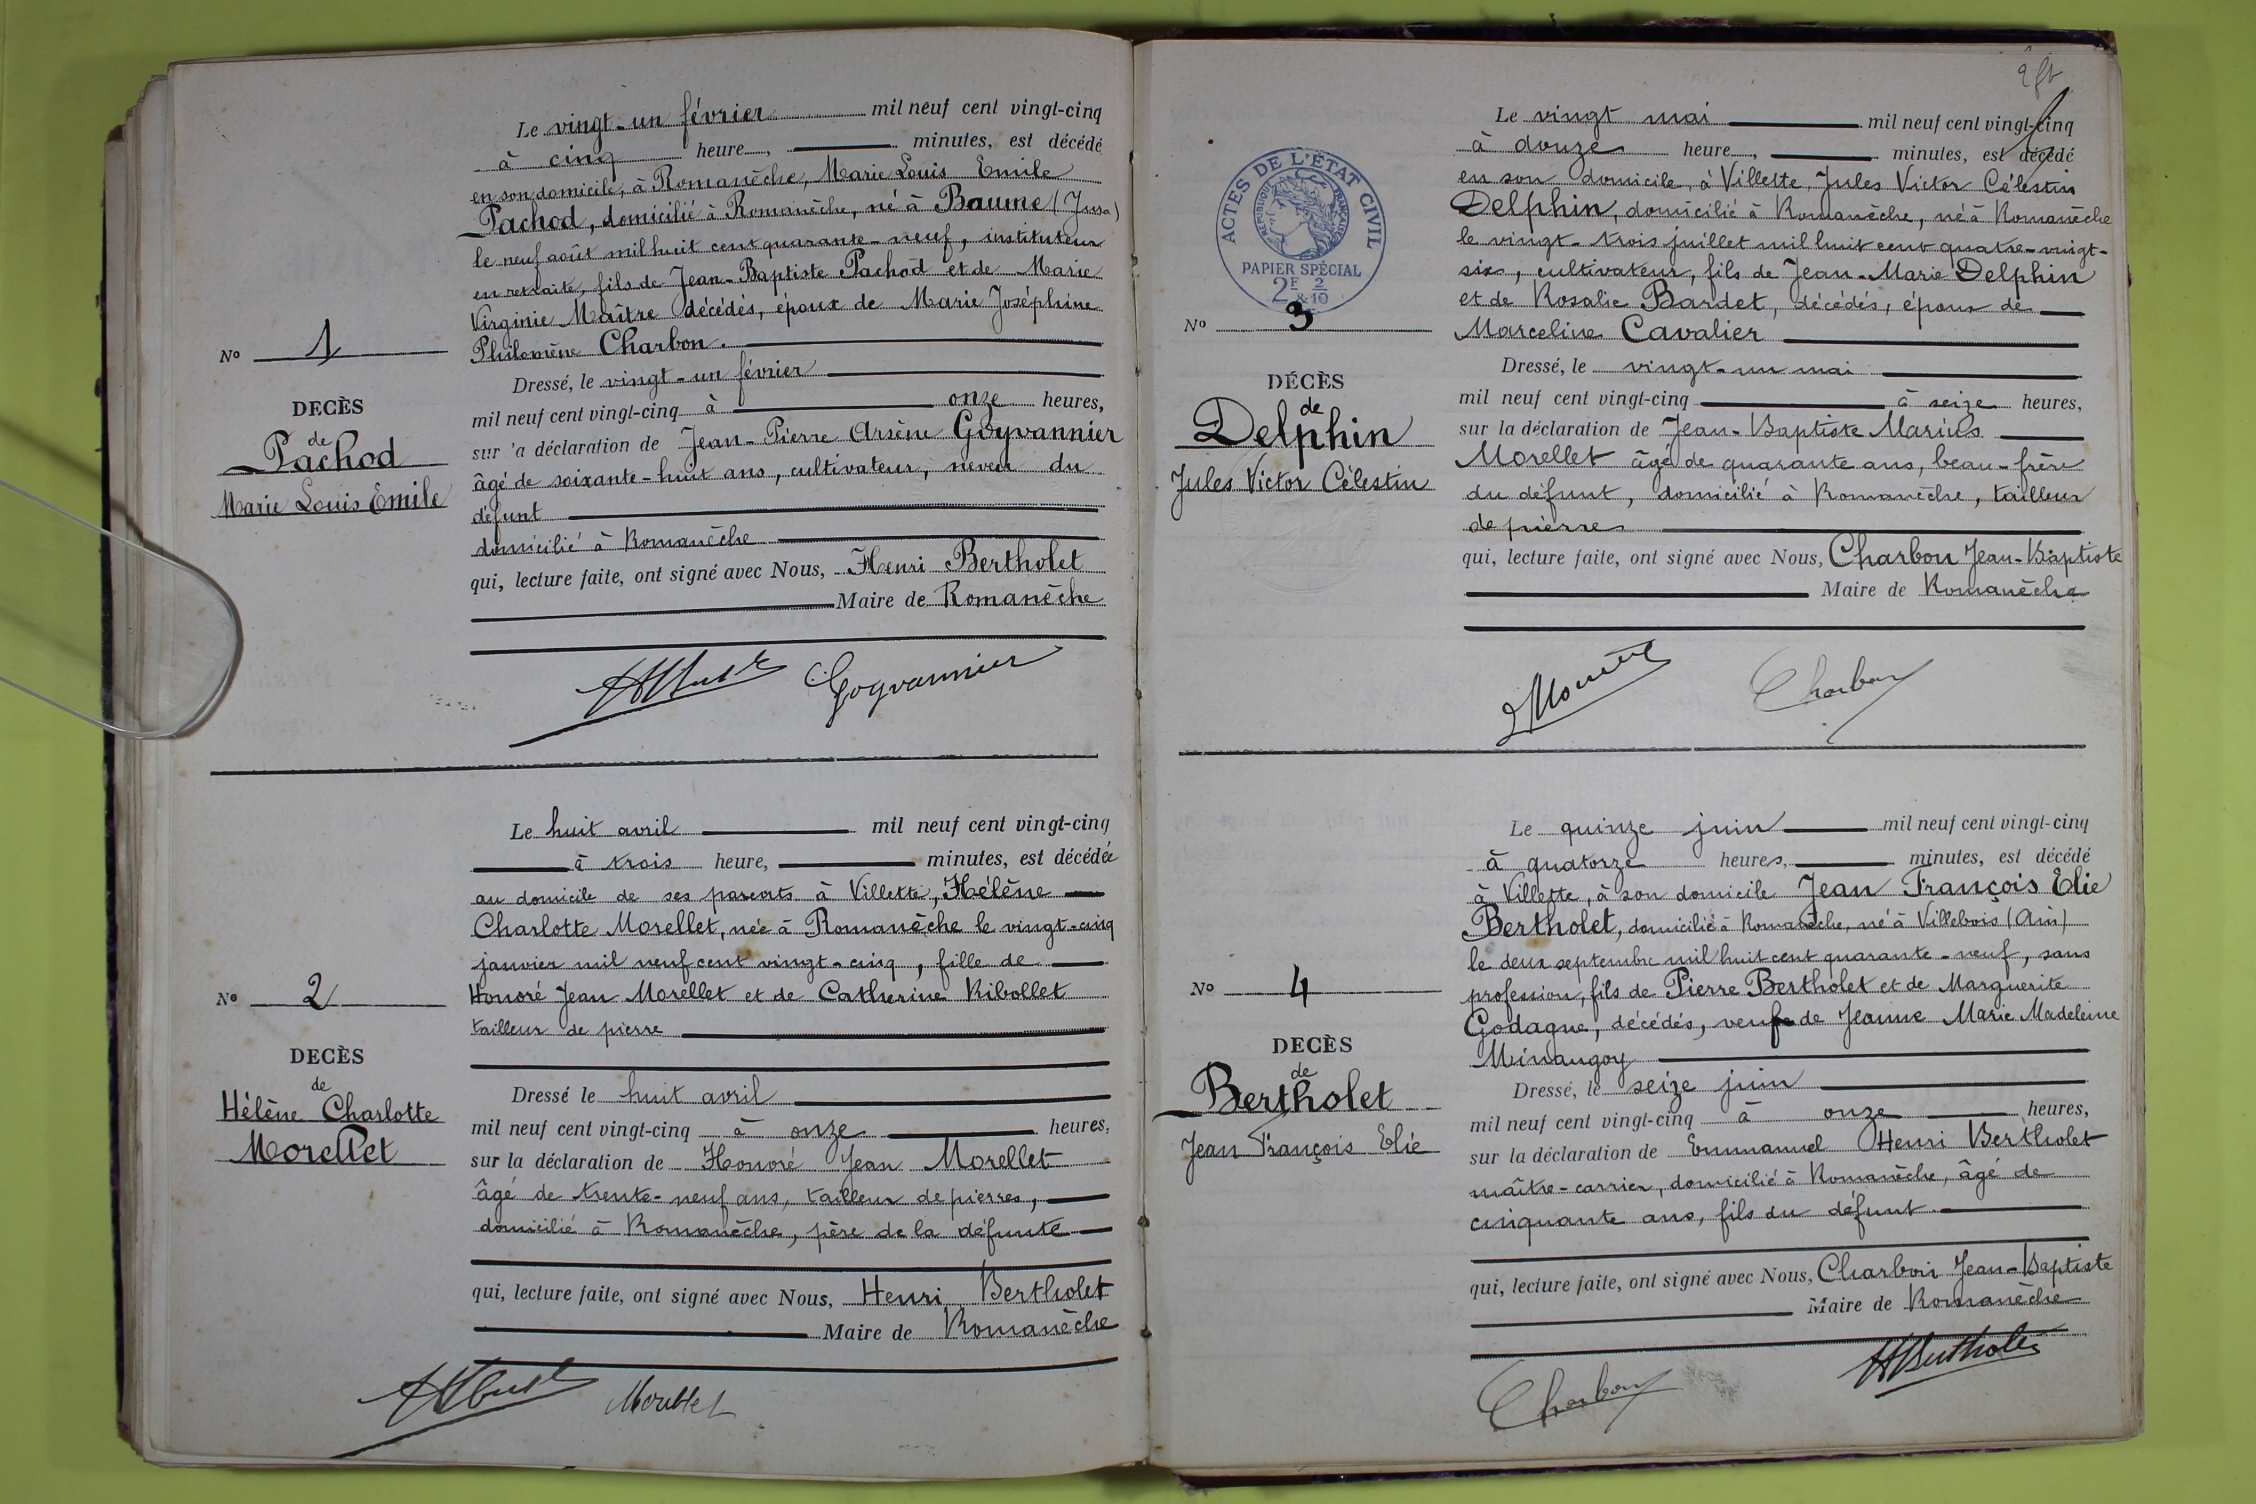 Le vingt-un février mil neuf cent vingt-cinq
à cinq heure, minutes, est décédé
en son domicile, à Romanèche, Marie Louis Emile
Pachod, domicilié à Romanèche, né à Baume (Jura)
le neuf août mil huit cent quarante-neuf, instituteur
en retraite, fils de Jean-Baptiste Pachod et de Marie
Virginie Maître décédés, époux de Marie Joséphine
Philomène Charbon.
No 1
DECÈS
de
Pachod
Marie Louis Emile
Dressé, le vingt-un février
mil neuf cent vingt-cinq à onze heures,
sur 'a déclaration de Jean-Pierre Arsène Goyvannier
âgé de soixante-huit ans, cultivateur, neveu du
défunt
domicilié à Romanèche
qui, lecture faite, ont signé avec Nous, Henri Bertholet
Maire de Romanèche
Goyvannier
Le huit avril mil neuf cent vingt-cinq
à trois heure, minutes, est décédée
au domicile de ses parents à Villette, Hélène
Charlotte Morellet, née à Romanèche le vingt-cinq
janvier mil neuf cent vingt-cinq, fille de
Honoré Jean Morellet et de Catherine Ribollet
tailleur de pierre
No 2
DECÈS
de
Hélène Charlotte
Morellet
Dressé le huit avril
mil neuf cent vingt-cinq à onze heures,
sur la déclaration de Honoré Jean Morellet
âgé de trente-neuf ans, tailleur de pierres,
domicilié à Romanèche, père de la défunte
qui, lecture faite, ont signé avec Nous, Henri Bertholet
Maire de Romanèche
Morellet
ACTES DE L'ÉTAT CIVIL
RÉPUBLIQUE FRANÇAISE
PAPIER SPÉCIAL
2F & 2/10
Le vingt mai mil neuf cent vingt-cinq
à douze heure, minutes, est décédé
en son domicile, à Villette, Jules Victor Célestin
Delphin, domicilié à Romanèche, né à Romanèche
le vingt-trois juillet mil huit cent quatre-vingt-
six, cultivateur, fils de Jean-Marie Delphin
et de Rosalie Bardet, décédés, époux de
Marceline Cavalier
No 3
DÉCÈS
de
Delphin
Jules Victor Célestin
Dressé, le vingt-un mai
mil neuf cent vingt-cinq à seize heures,
sur la déclaration de Jean-Baptiste Marius
Morellet âgé de quarante ans, beau-frère
du défunt, domicilié à Romanèche, tailleur
de pierres
qui, lecture faite, ont signé avec Nous, Charbon Jean-Baptiste
Maire de Romanèche
Charbon
Le quinze juin mil neuf cent vingt-cinq
à quatorze heures, minutes, est décédé
à Villette, à son domicile Jean François Elie
Bertholet, domicilié à Romanèche, né à Villebois (Ain)
le deux septembre mil huit cent quarante-neuf, sans
profession, fils de Pierre Bertholet et de Marguerite
Godagne, décédés, veuf de Jeanne Marie Madeleine
Minangoy
No 4
DECÈS
de
Bertholet
Jean François Elie
Dressé, le seize juin
mil neuf cent vingt-cinq à onze heures,
sur la déclaration de Emmanuel Henri Bertholet
maître-carrier, domicilié à Romanèche, âgé de
cinquante ans, fils du défunt.
qui, lecture faite, ont signé avec Nous, Charbon Jean-Baptiste
Maire de Romanèche
Charbon
HBertholet